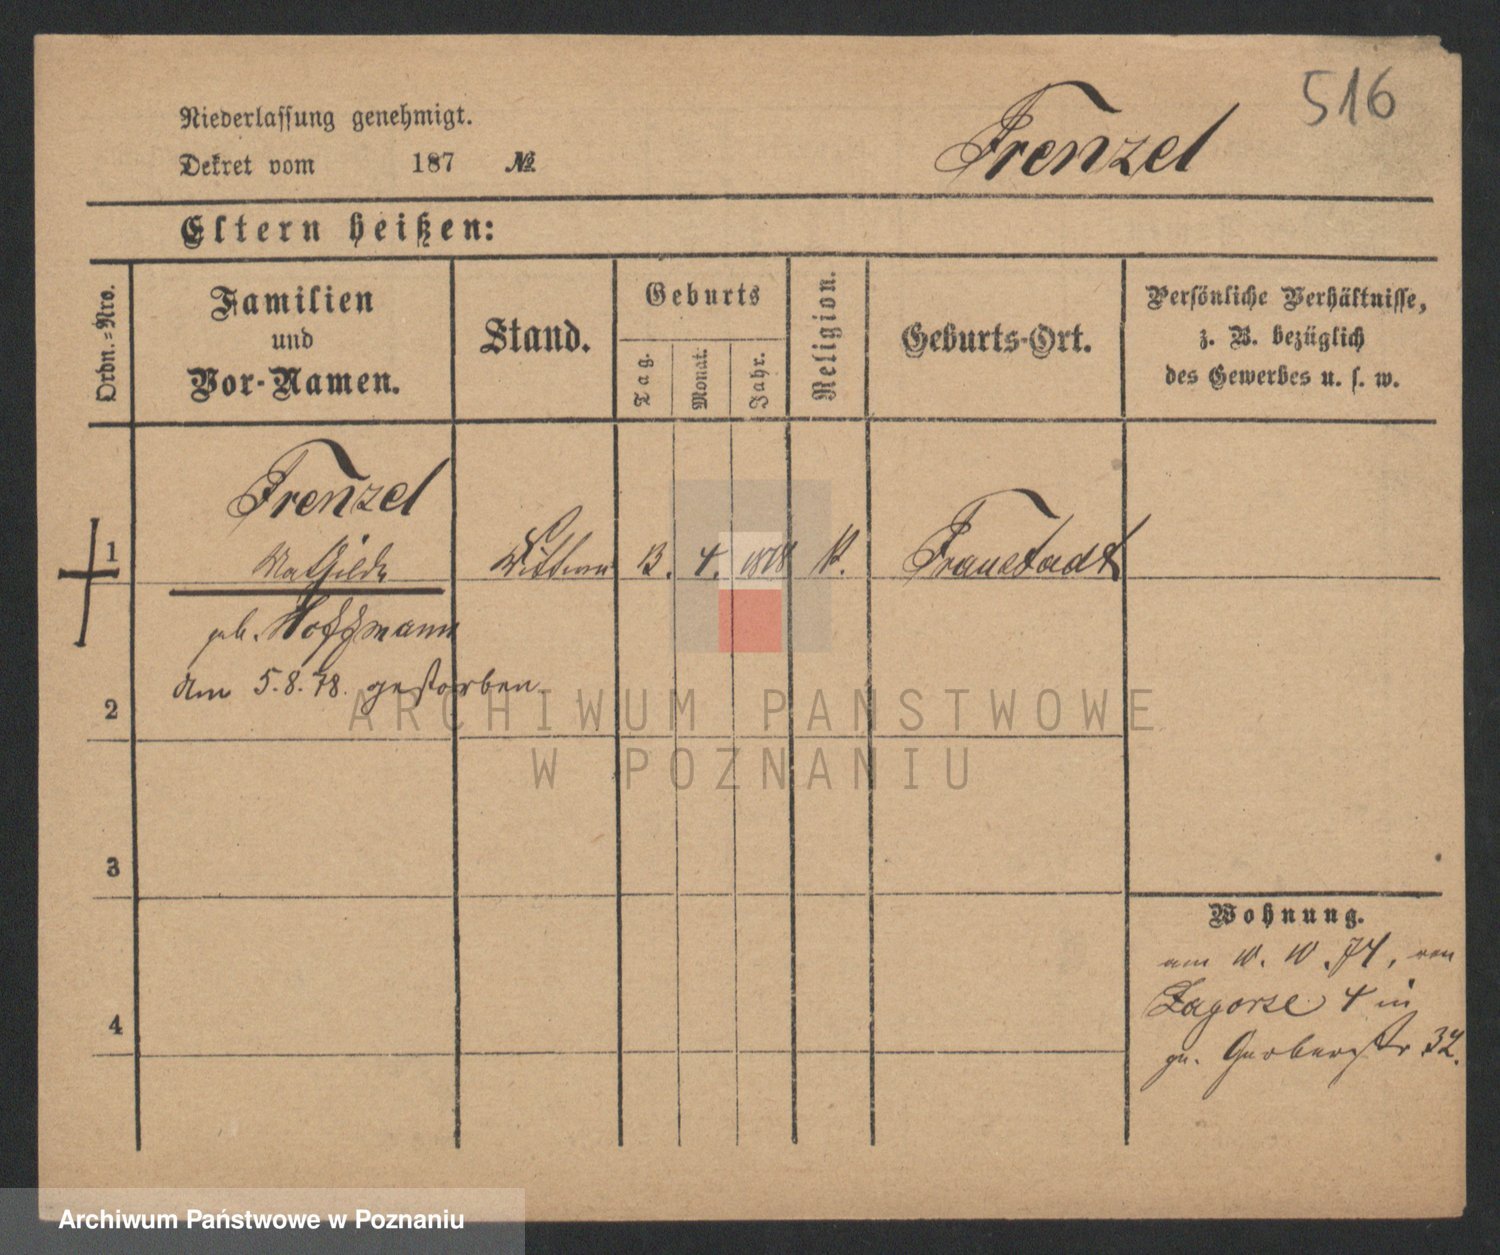 516
Niederlassung genehmigt.
Frenzel
Dekret vom 187 №
Eltern heißen:
Ordn.=Nro.
Familien
und
Vor-Namen.
Stand.
Geburts
Tag.
Monat.
Jahr.
Religion.
Geburts-Ort.
Persönliche Verhältnisse,
z. B. bezüglich
des Gewerbes u. s. w.
Frenzel
1 Mathilde 4. Fraustadt
geb. Hoffmann
am 5.8.78. gestorben
2
ARCHIWUM PAŃSTWOWE
W POZNANIU
3
Wohnung.
am 74, von
Zagorze 4 in
Gerberstr 32.
4
Archiwum Państwowe w Poznaniu